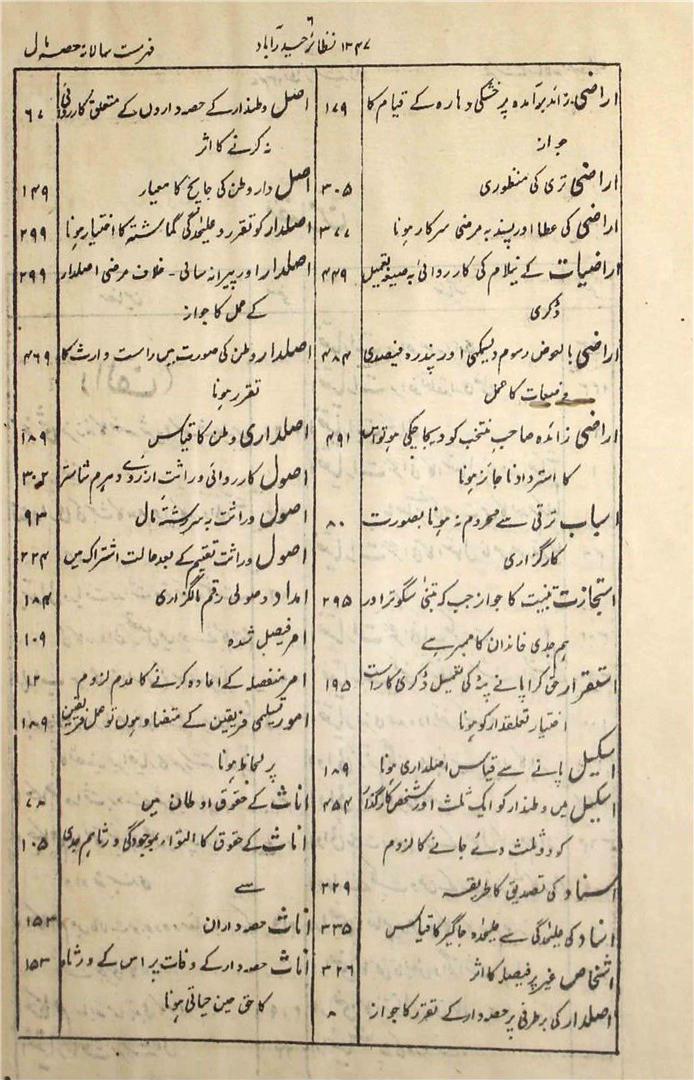 فہرست سالانہ حصہ مال
۶
نظائر حیدرآباد ۱۳۴۷
اراضی زائد برآمدہ پر خشکی دہارہ کے قیام کا ۱۷۹
جواز
اراضی تری کی منظوری ۳۰۵
اراضی کی عطا اور پسند بہ مرضی سرکار ہونا ۳۷۷
اراضیات کے نیلام کی کارروائی بصیغہ تعمیل ۴۴۹
ڈگری
اراضی بالعوض رسوم دیسمکھی اور پندرہ فیصدی ۴۸۴
وضعات کا عمل
اراضی زائدہ صاحب منتخب کو دیجا چکی ہو تو اس ۴۹۱
کا استرداد ناجائز ہونا
اسباب ترقی سے محروم نہ ہونا بصورت ۸۰
کارگزاری
استجازت تبنیت کا جواز جب کہ متبنیٰ سگوتر اور ۲۹۵
ہم جدی خاندان کا ممبر ہے
استقرار حق کرا پانے پر کی تعمیل ڈگری کا راست ۱۹۵
اختیار تعلقدار کو ہونا
اسکیل پانے سے قیاس اصلداری ہونا ۱۸۹
اسکیل میں وطندار کو ایک ثلث اور شخص کارگذار ۴۵۴
کو دو ثلث دئے جانے کا لزوم
اسناد کی تصدیق کا طریقہ ۲۲۹
اسناد کی علیحدگی سے علیحدہ جاگیر کا قیاس ۳۳۵
اشخاص غیر پر فیصلہ کا اثر ۳۲۶
اصلدار کی برطرفی پر حصہ دار کے تقرر کا جواز ۸
اصل وطندار کے حصہ داروں کے متعلق کارروائی ۶۷
نہ کرنے کا اثر
اصل دار وطن کی جانچ کا معیار ۱۴۹
اصلدار کو تقرر و علیحدگی گماشتہ کا اختیار ہونا ۲۹۹
اصلدار اور پیرانہ سالی ۔ خلاف مرضی اصلدار ۲۹۹
کے عمل کا جواز
اصلدار وطن کی صورت میں راست وارث کا ۴۶۹
تقرر ہونا
اصلداری وطن کا قیاس ۱۸۹
اصول کارروائی وراثت ازروئے دہرم شاستر ۳۰۲
اصول وراثت بہ سررشتہ مال ۹۳
اصول وراثت تقسیم کے بعد حالت اشتراک میں ۲۲۴
امداد وصولی رقم مالگزاری ۱۸۴
امر فیصل شدہ ۱۰۹
امر منفصلہ کے اعادہ کرنے کا عدم لزوم ۱۲
امور تسلیمی فریقین کے متضاد ہوں تو عمل فریقین ۱۸۹
پر لحاظ ہونا
اناث کے حقوق اوطان میں
اناث کے حقوق کا التواء بموجودگی ورثا ہم جدی ۱۰۵
سے
اناث حصہ داران ۱۵۳
اناث حصہ دار کے وفات پر اس کے ورثاء ۱۵۳
کا حق حین حیاتی ہونا